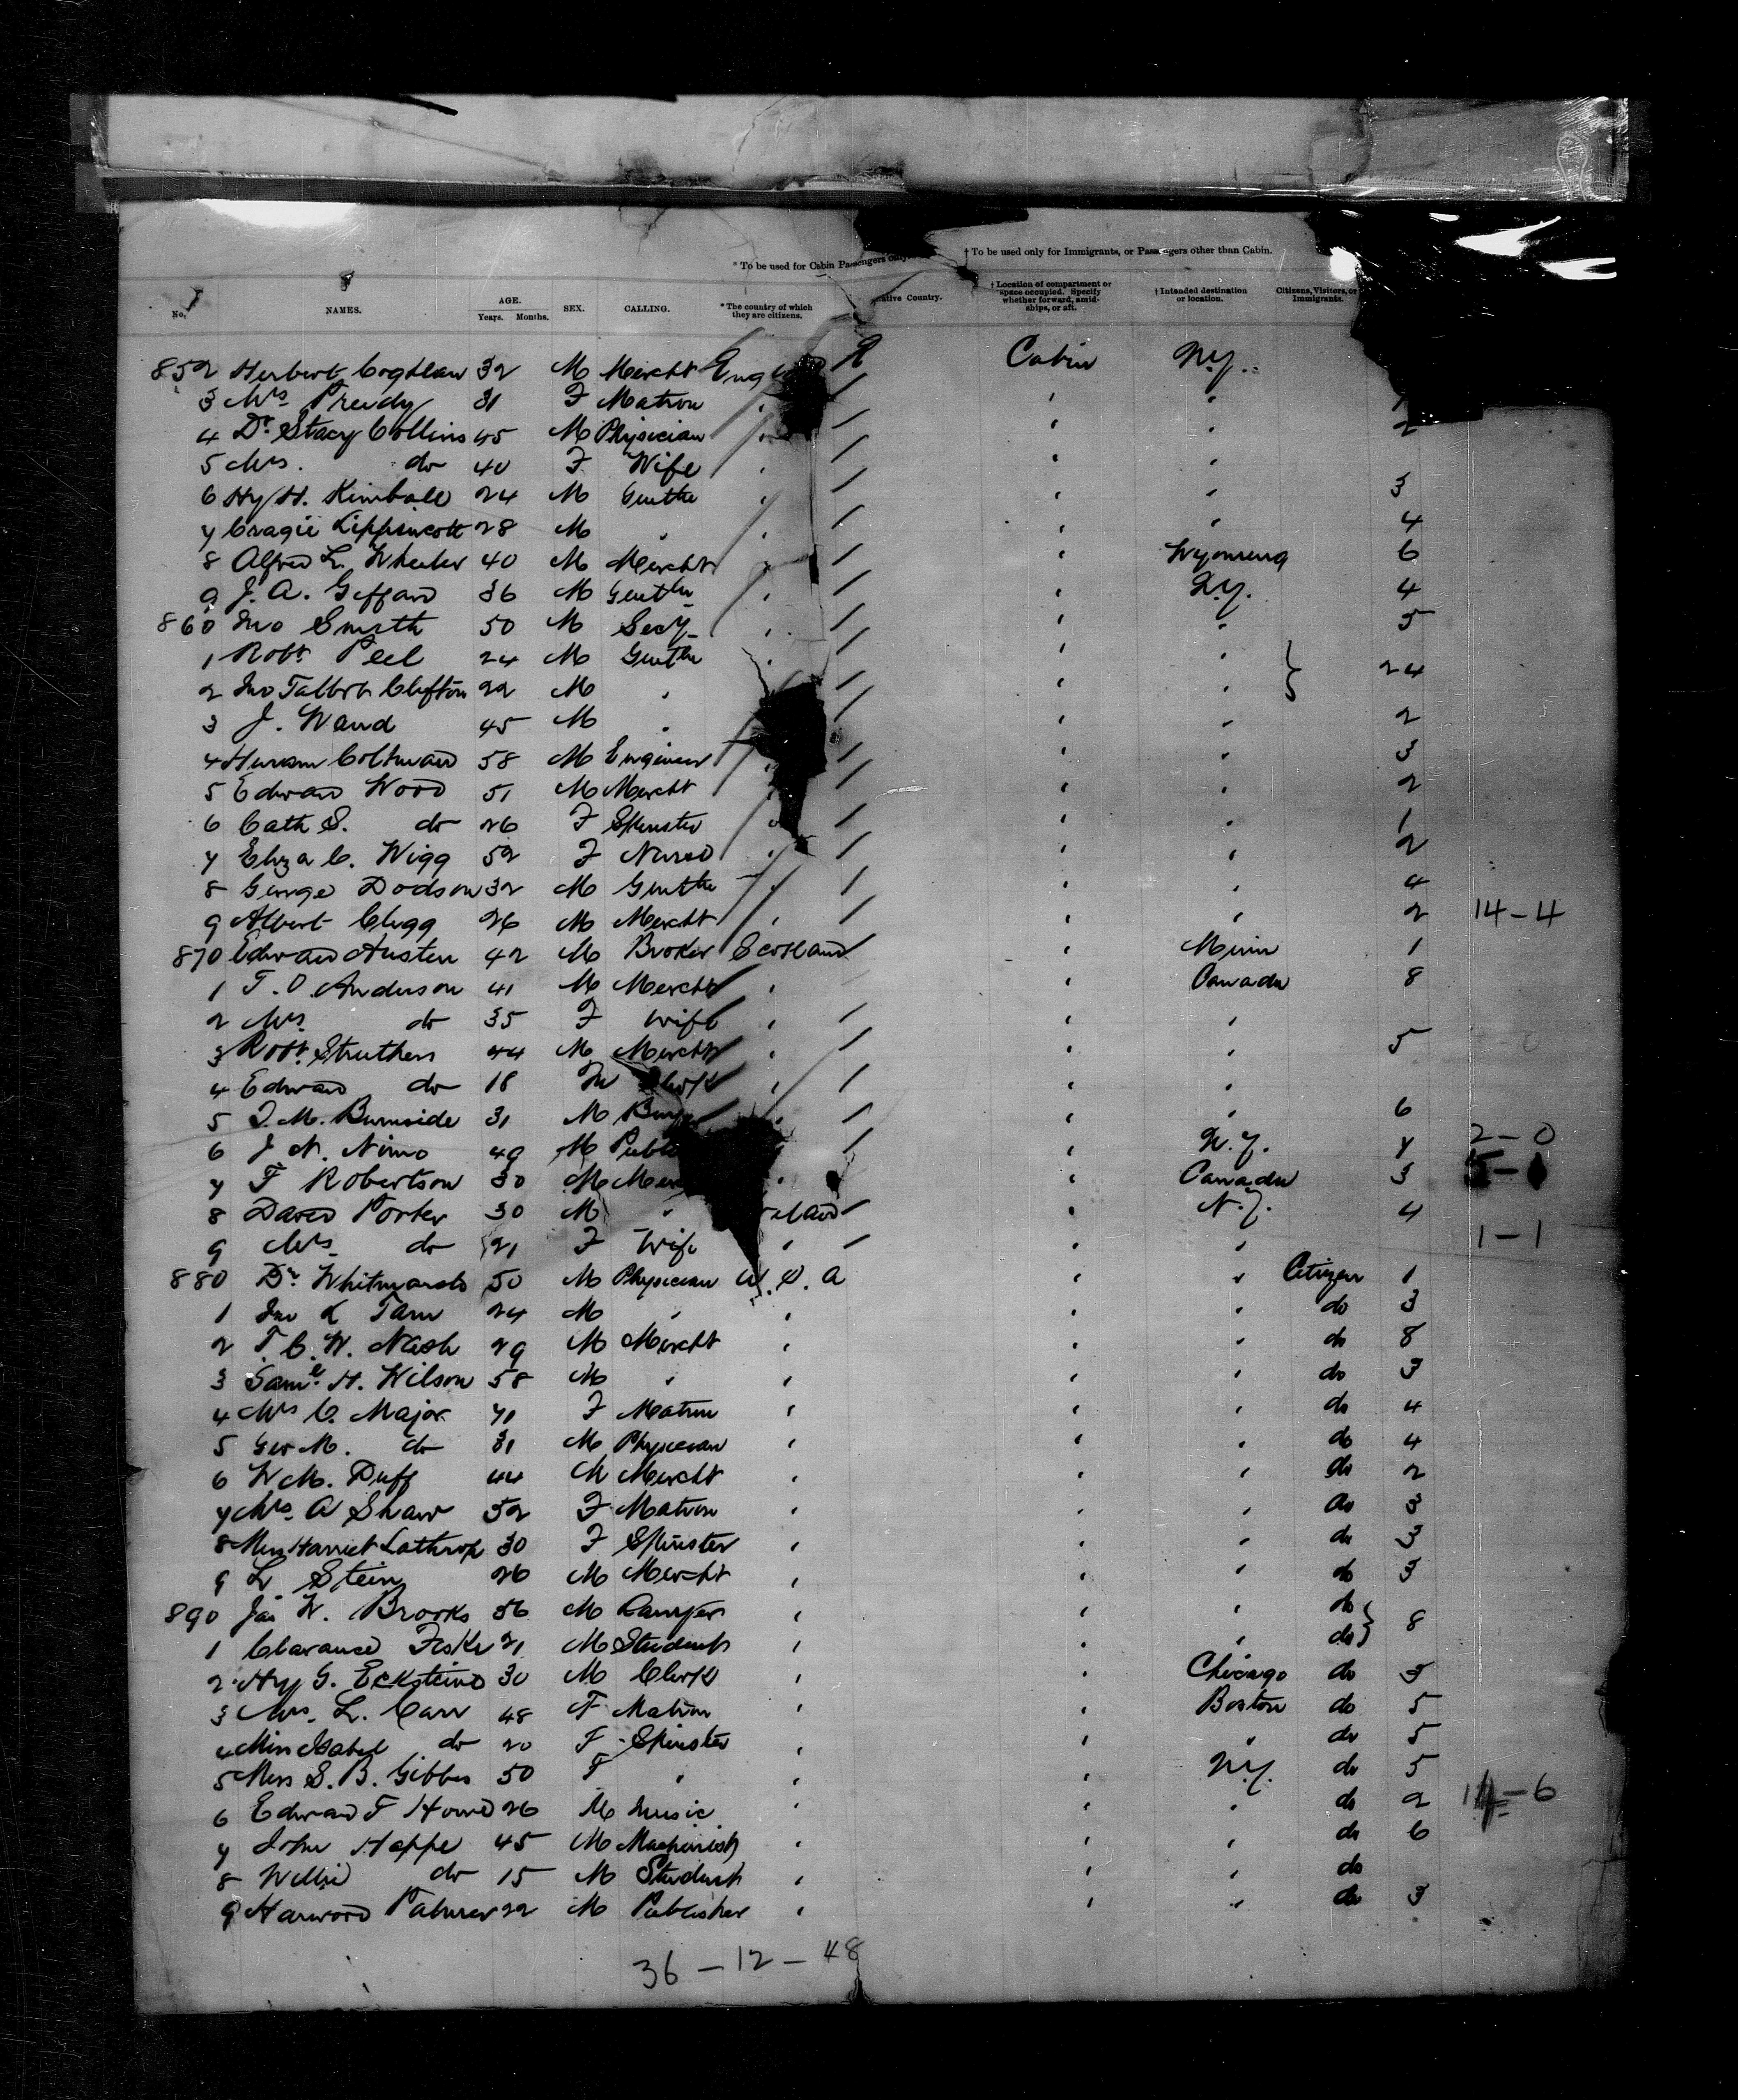 * To be used for Cabin Passengers only. † To be used only for Immigrants, or Passengers other than Cabin.
No. NAMES. AGE. Years. Months. SEX. CALLING. * The country of which they are citizens. Native Country. † Location of compartment or space occupied. Specify whether forward, amidships, or aft. † Intended destination or location. Citizens, Visitors, or Immigrants.
852 Herbert Coghlan 32 M Mercht Cabin N.Y.
3 Mrs Preedy 31 F Matron "
4 Dr. Stacy Collins 45 M Physician " " " 2
5 Mrs. do 40 F Wife " " "
6 Hy H. Kimball 24 M Gentln " " " 3
7 Cragie Lippincott 28 M " " " " 4
8 Alfred L. Wheeler 40 M Mercht " " Wyoming 6
9 J. A. Giffard 36 M Gentln " " N.Y. 4
860 Jno Smith 50 M Secy " " " 5
1 Robt Peel 24 M Gentln " " " } 24
2 Jno Talbot Clifton 22 M " " "
3 J. Wand 45 M " " " 2
4 58 M Engineer " " " 3
5 Edward Wood 51 M Mercht " " " 2
6 Cath S. do 26 F Spinster " " " 1
7 Eliza C. Wigg 52 F Nurse " " " 2
8 George Dodson 32 M Gentln " " " 4
9 Albert Clegg 26 M Mercht " " " 2 14-4
870 Edward Austen 42 M Broker Scotland " Minn 1
1 T. O. Anderson 41 M Mercht " " Canada 8
2 Mrs do 35 F Wife " " "
3 Robt Struthers 44 M Mercht " " " 5
4 Edward do 18 M Clerk " " "
5 J. M. Burnside 31 M " " " 6
6 J. N. Nimo 49 M " N.Y. 7 2-0
7 F Robertson 30 M " " Canada 3
8 David Porter 30 M " " N.Y. 4
9 Mrs do 21 F Wife " " " 1-1
880 Dr. Whitmarsh 50 M Physician U.S.A " " Citizen 1
1 Jno L Tam 24 M " " " " do 3
2 T. C. W. Nash 29 M Mercht " " " do 8
3 Saml H. Wilson 58 M " " " " do 3
4 Mrs C. Major 71 F Matron " " " do 4
5 Geo M. do 31 M Physician " " " do 4
6 W M. Duff 44 M Mercht " " " do 2
7 Mrs. A Shaw 52 F Matron " " " do 3
8 Miss Harriet Lathrop 30 F Spinster " " " do 3
9 L Stein 26 M Mercht " " " do 3
890 Jas W. Brooks 36 M Lawyer " " " do } 8
1 Clarance Fiske 21 M Student " " " do
2 Hy G. Eckstein 30 M Clerk " " Chicago do 3
3 Mrs. L. Carr 48 F Matron " " Boston do 5
4 Miss Isabel do 20 F Spinster " " " do 5
5 Miss S. B. Gibbes 50 F " " " N.Y. do 5
6 Edward F 26 M Music " " " do 2 14-6
7 John Happe 45 M Machinist " " " do 6
8 Willie do 15 M Student " " " do
9 Harwood Palmer 22 M Publisher " " " do 3
36-12-48